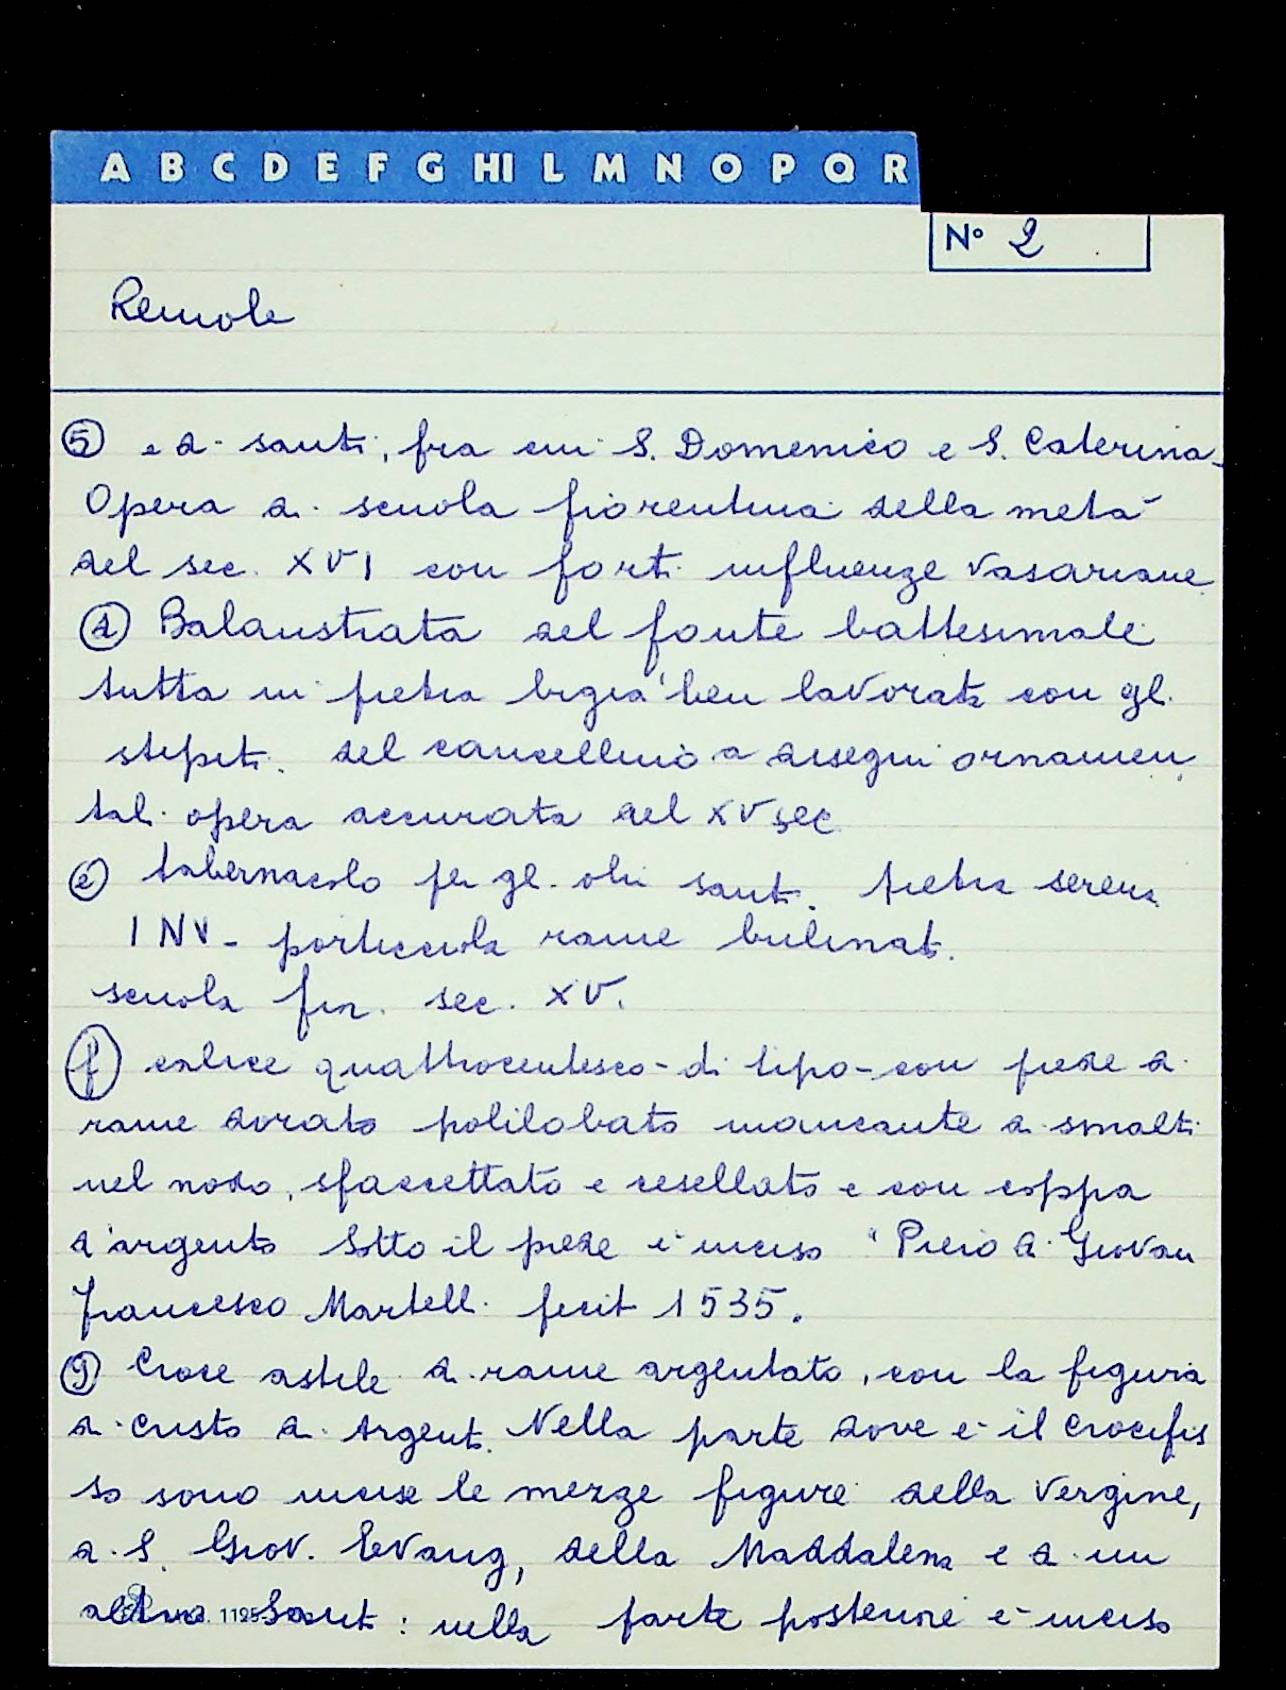 A B C D E F G HI L M N O P Q R
N° 2
Remole
5 e di santi, fra cui S. Domenico e S. Caterina-
Opera di scuola fiorentina della metà
del sec. XVI con forti influenze vasariane.
d Balaustrata del fonte battesimale
tutta in pietra bigia ben lavorata con gli
stipiti del cancellino a disegni ornamen
tali opera accurata del XV sec
e tabernacolo per gli olii santi. pietra serena
INV - porticciola rame bulinato.
scuola fior. sec. XV.
f calice quattrocentesco - di tipo - con piede di
rame dorato polilobato mancante di smalti
nel nodo, sfaccettato e cesellato e con coppa
d'argento Sotto il piede è inciso "Piero di Giovan
Francesco Martelli fecit 1535.
g Croce astile di rame argentato, con la figura
di Cristo di Argento. Nella parte dove è il Crocifis
so sono incise le mezze figure della Vergine,
di S. Giov. Evang, della Maddalena e di un
altro Santo : nella parte posteriore è inciso